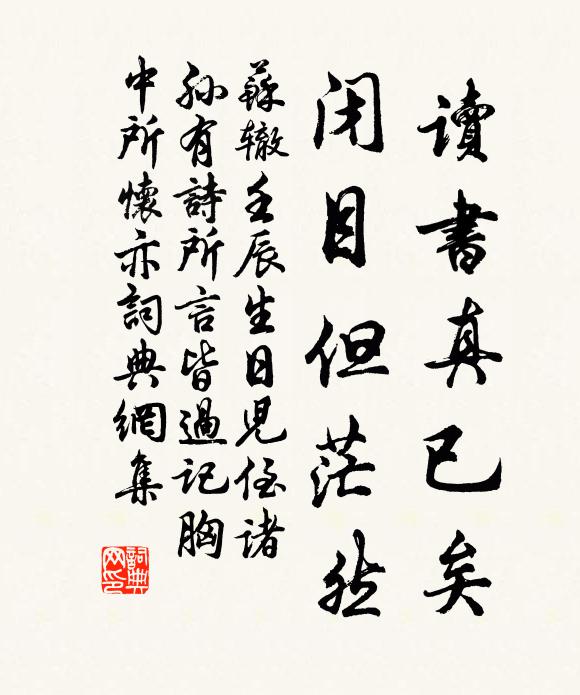 讀書真已矣
閉目但茫然
蘇轍壬辰生日兒侄諸
孙有詩所言皆過記胸
中所懷亦詞典網集
詞典网印